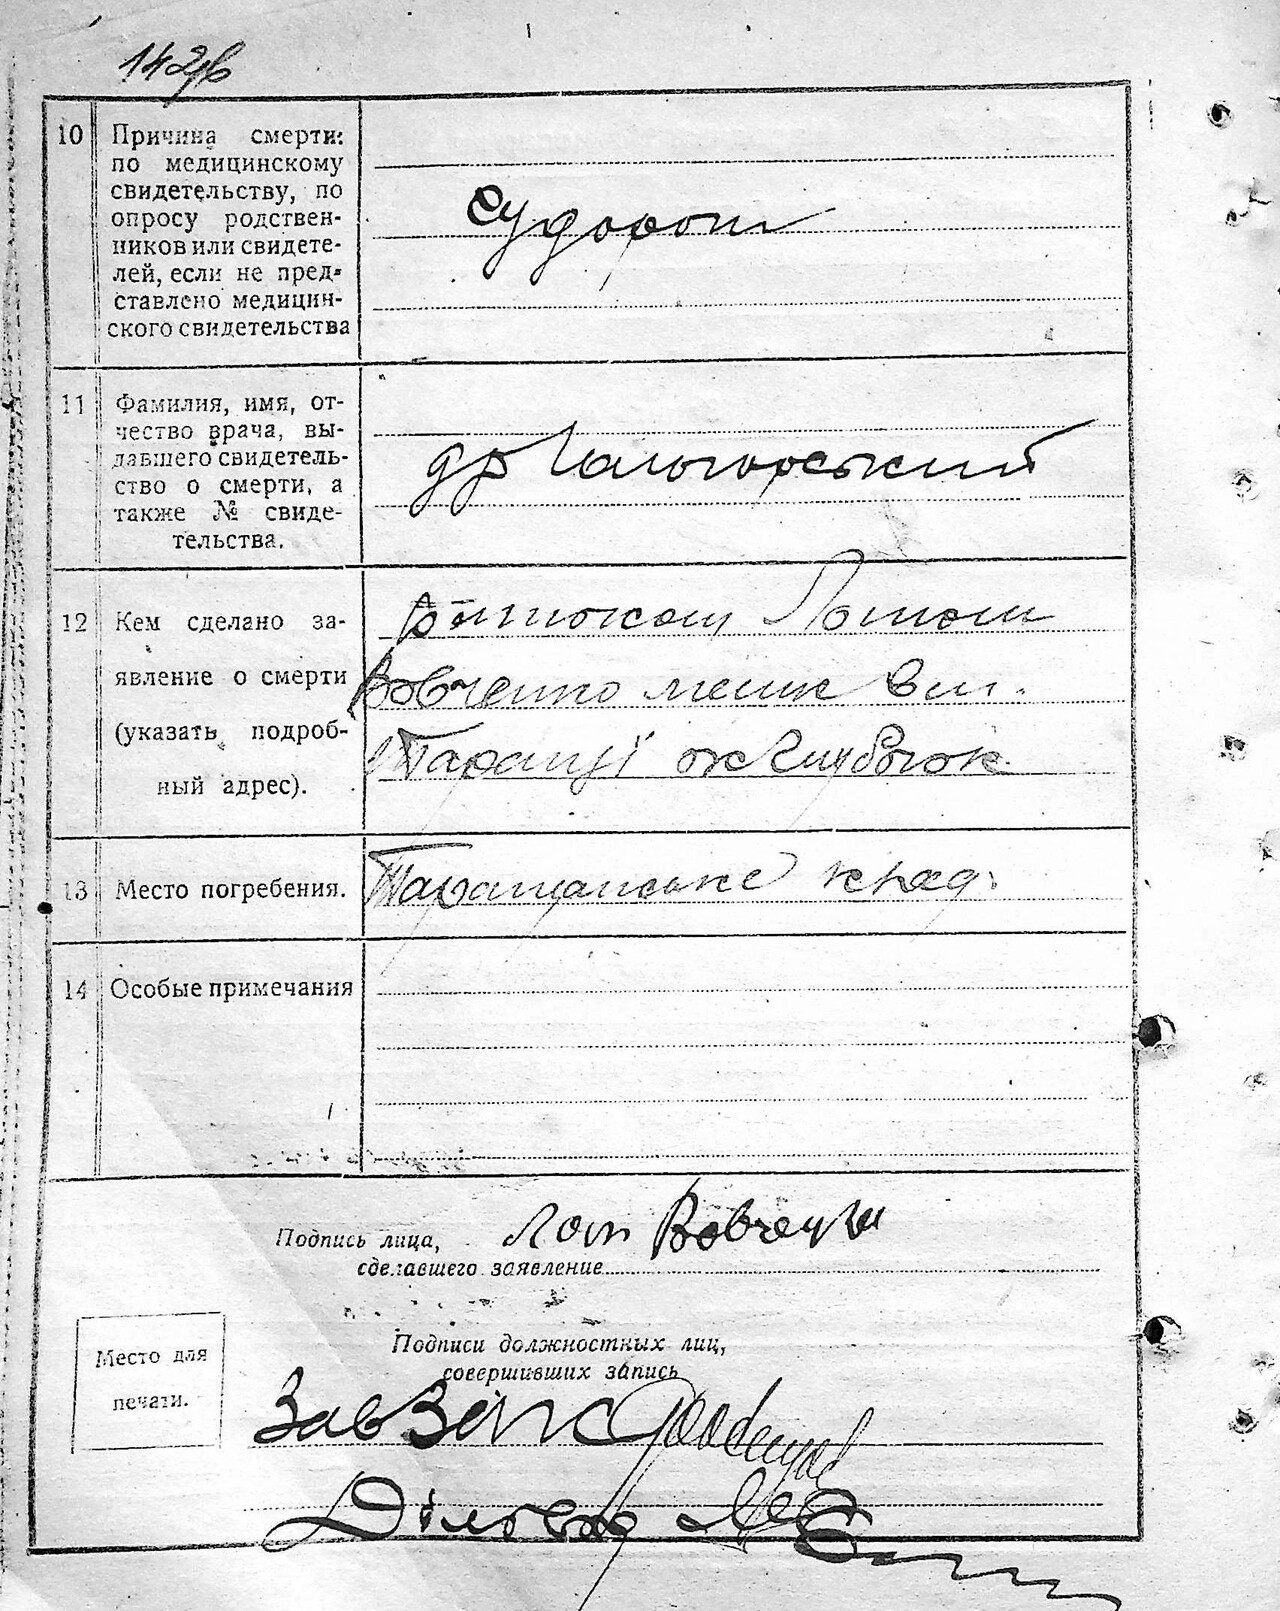 142зв
10 Причина смерти:
по медицинскому
свидетельству, по
опросу родствен-
ников или свидете-
лей, если не пред-
ставлено медицин-
ского свидетельства
Судороги
11 Фамилия, имя, от-
чество врача, вы-
давшего свидетель-
ство о смерти, а
также № свиде-
тельства.
др
12 Кем сделано за-
явление о смерти
(указать подроб-
ный адрес).
Вовченко меш в
Таращі
13 Место погребения.
Таращанське клад.
14 Особые примечания
Подпись лица,
сделавшего заявление
Вовченко
Место для
печати.
Подписи должностных лиц,
совершивших запись
Зав Загс
Діловод